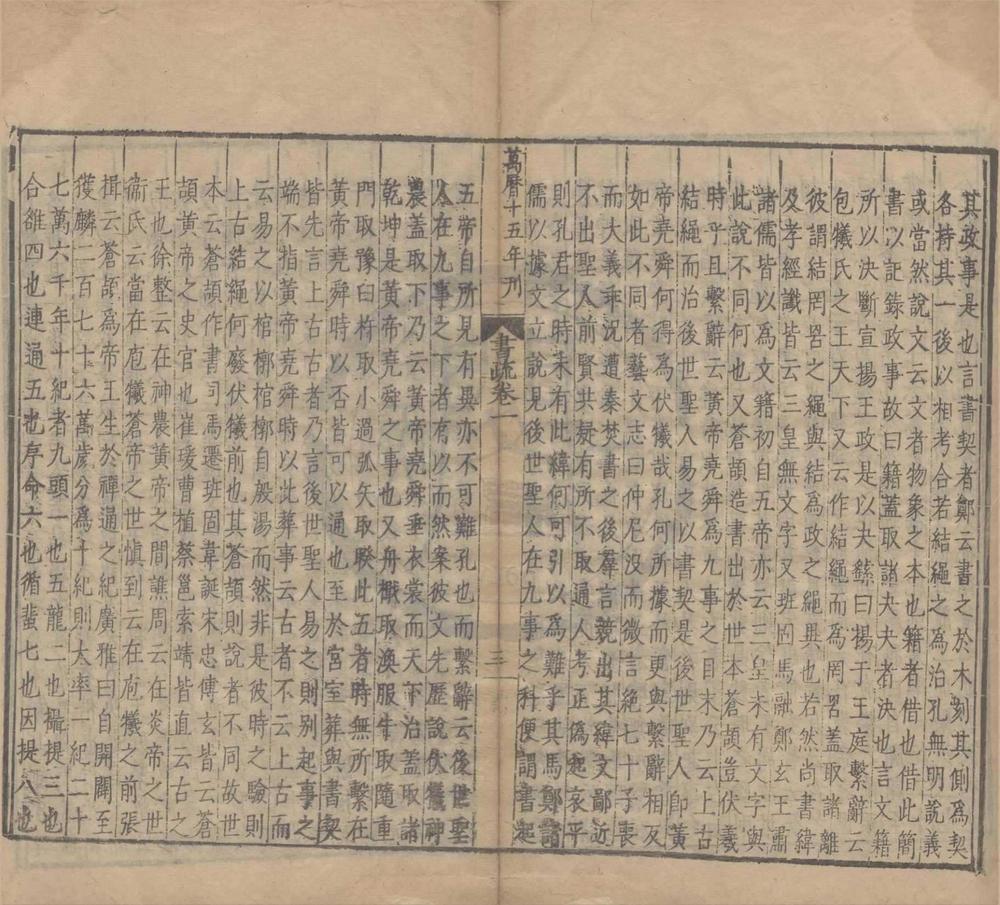 其政事是也言書契者鄭云書之於木刻其側爲契
各持其一後以相考合若結繩之爲治孔無明說義
或當然說文云文者物象之本也籍者借也借此簡
書以記錄政事故曰籍蓋取諸夬夬者決也言文籍
所以決斷宣揚王政是以夬繇曰揚于王庭繫辭云
包犧氏之王天下又云作結繩而爲罔罟蓋取諸離
彼謂結罔罟之繩與結爲政之繩異也若然尚書緯
及孝經讖皆云三皇無文字又班固馬融鄭玄王肅
諸儒皆以爲文籍初自五帝亦云三皇未有文字與
此說不同何也又蒼頡造書出於世本蒼頡豈伏羲
時乎且繫辭云黃帝堯舜爲九事之目末乃云上古
結繩而治後世聖人易之以書契是後世聖人即黃
帝堯舜何得爲伏犧哉孔何所據而更與繫辭相反
如此不同者藝文志曰仲尼没而微言絕七十子喪
而大義乖况遭秦焚書之後羣言競出其緯文鄙近
不出聖人前賢共疑有所不取通人考正偽起哀平
則孔君之時未有此緯何可引以爲難乎其馬鄭諸
儒以據文立說見後世聖人在九事之科便謂書起
萬曆十五年刊
書疏卷一
三
五帝自所見有異亦不可難孔也而繫辭云後世聖
人在九事之下者有以而然案彼文先歷說伏犧神
農蓋取下乃云黃帝堯舜垂衣裳而天下治蓋取諸
乾坤是黃帝堯舜之事也又舟檝取渙服牛取隨重
門取豫臼杵取小過弧矢取睽此五者時無所繫在
黃帝堯舜時以否皆可以通也至於宮室葬與書契
皆先言上古古者乃言後世聖人易之則别起事之
端不指黃帝堯舜時以此葬事云古者不云上古而
云易之以棺槨棺槨自殷湯而然非是彼時之驗則
上古結繩何廢伏犧前也其蒼頡則說者不同故世
本云蒼頡作書司馬遷班固韋誕宋忠傅玄皆云蒼
頡黃帝之史官也崔瑗曹植蔡邕索靖皆直云古之
王也徐整云在神農黃帝之間譙周云在炎帝之世
衞氏云當在庖犧蒼帝之世慎到云在庖犧之前張
揖云蒼頡爲帝王生於禪通之紀廣雅曰自開闢至
獲麟二百七十六萬歲分爲十紀則大率一紀二十
七萬六千年十紀者九頭一也五龍二也攝提三也
合雒四也連通五也序命六也循蜚七也因提八也